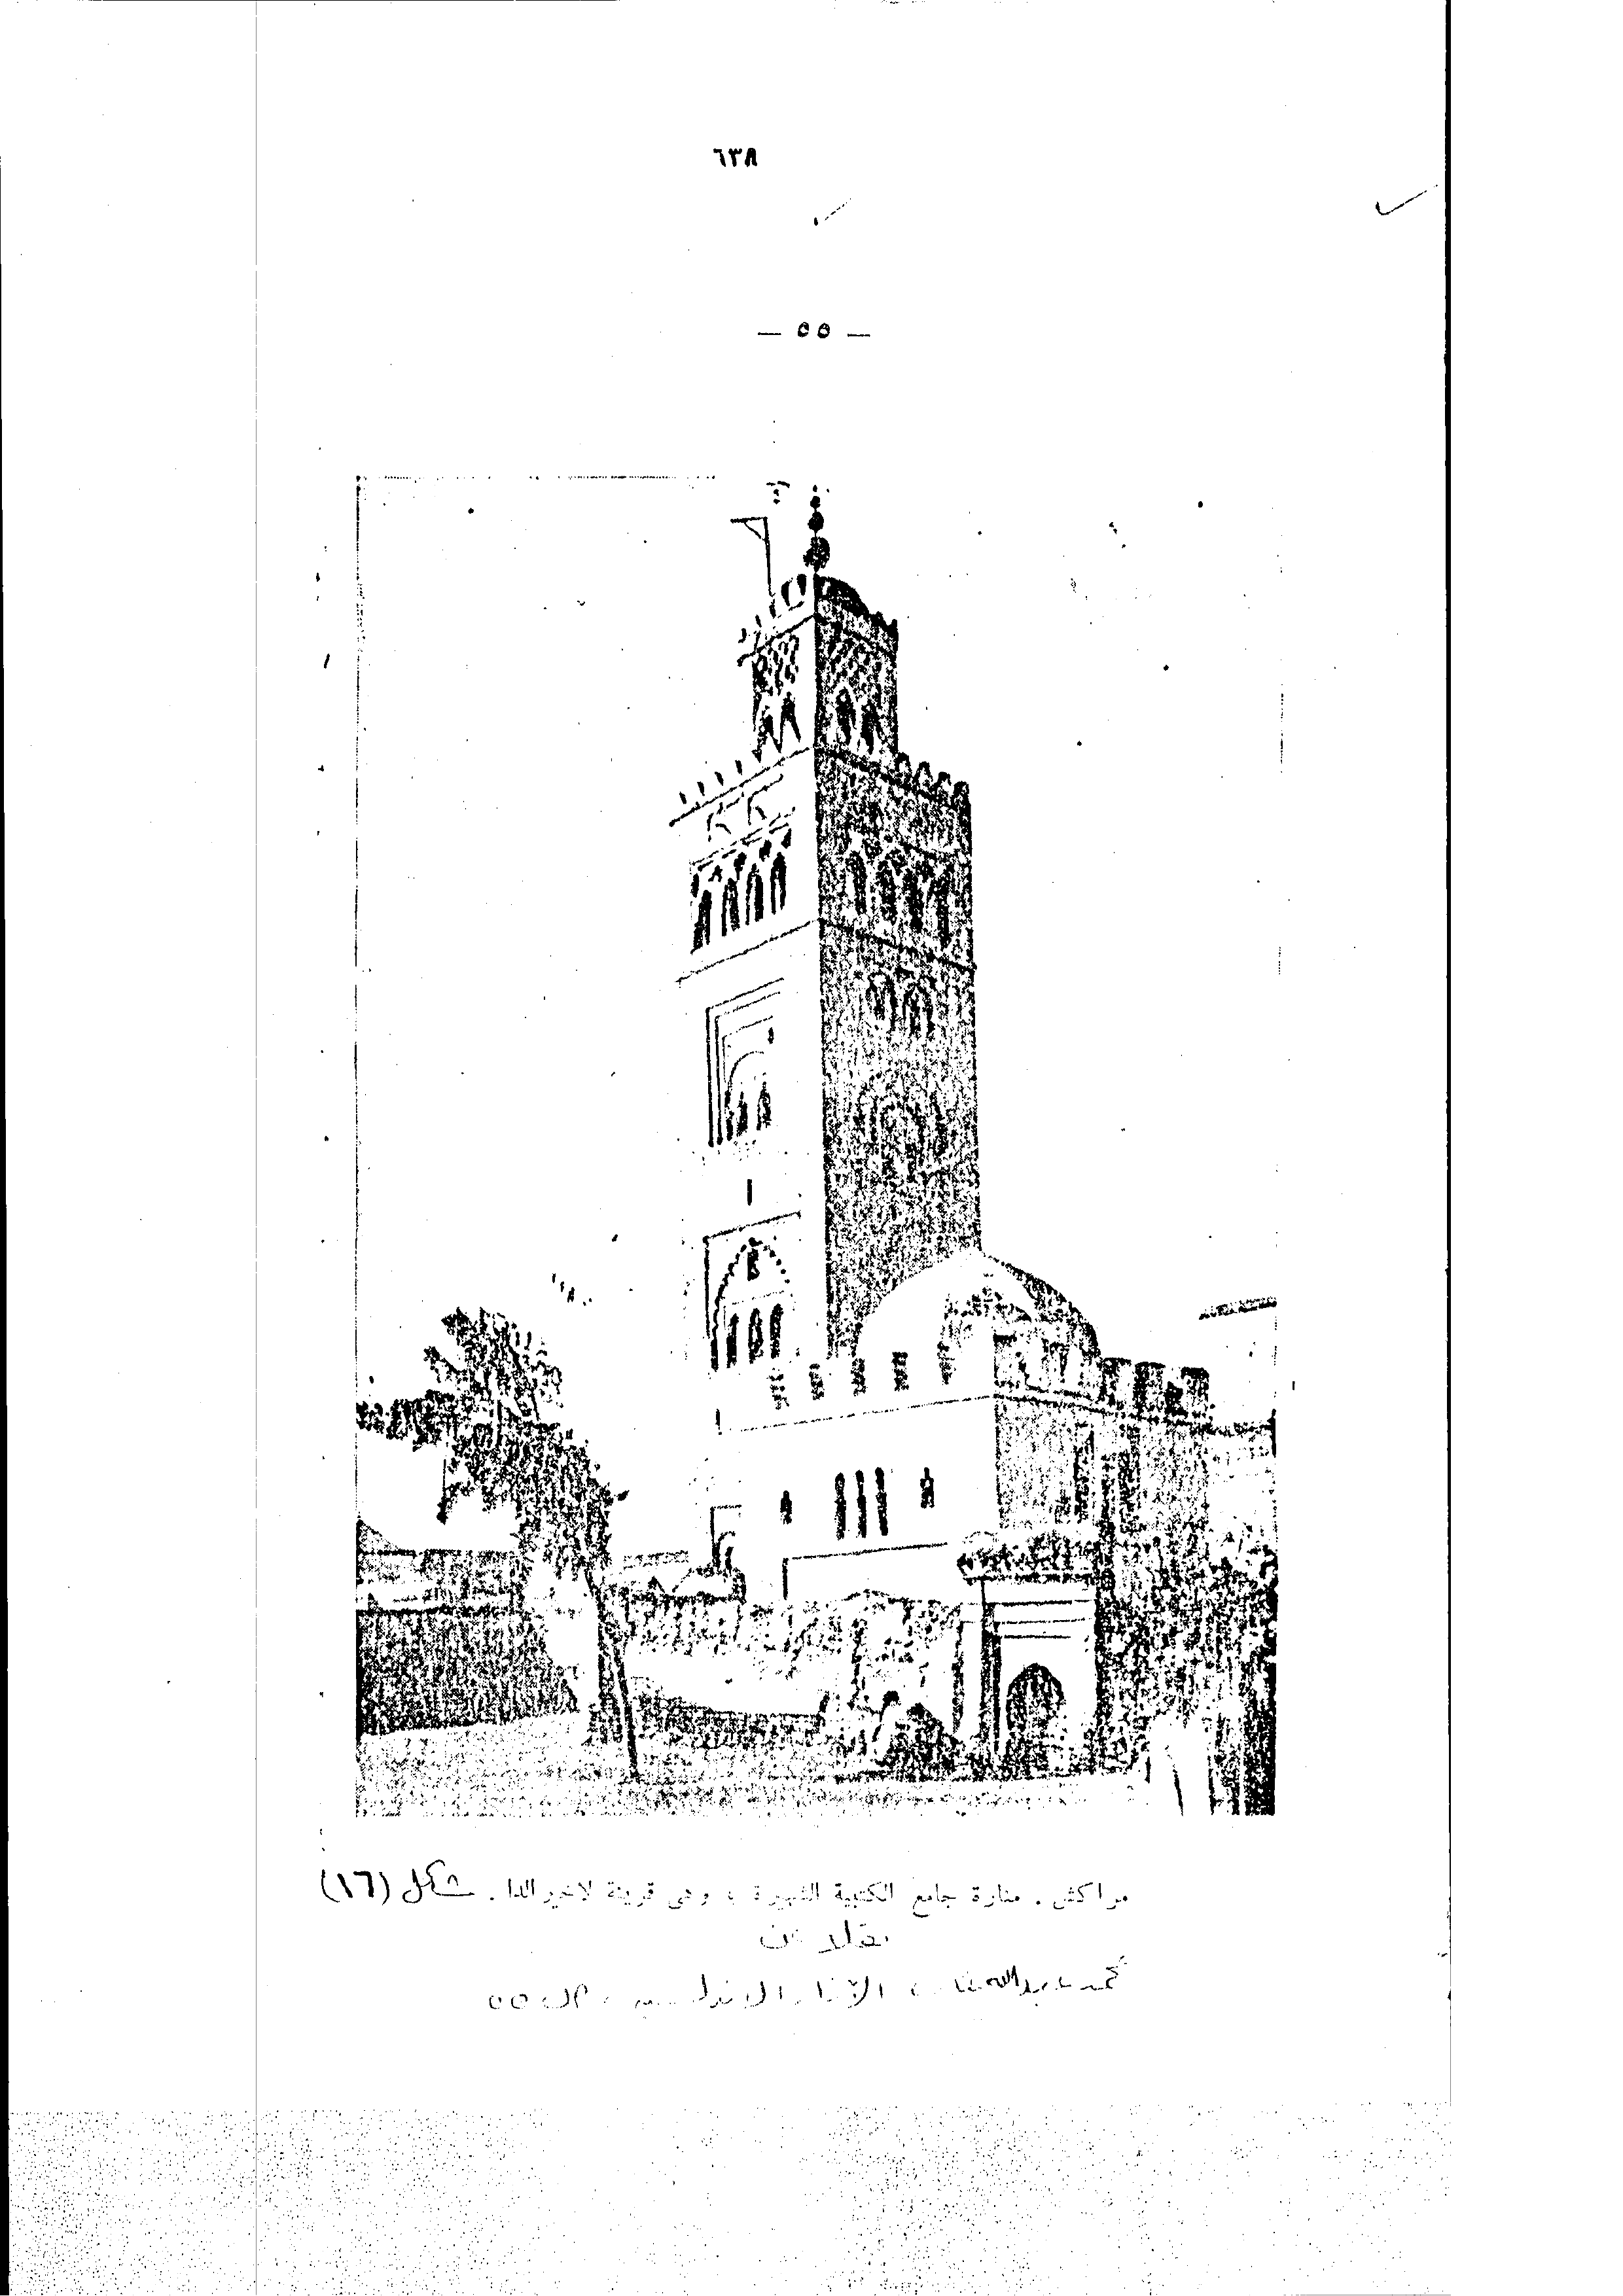 ٦٣٨
— ٥٥ —
مراكش . منارة جامع الكتبية الشهيرة ، وهى قرينة لاخيرالدا . شكل (١٦)
نقلا عن
محمد عبدالله عنان ، الآثار الاندلسية ، ص ٥٥